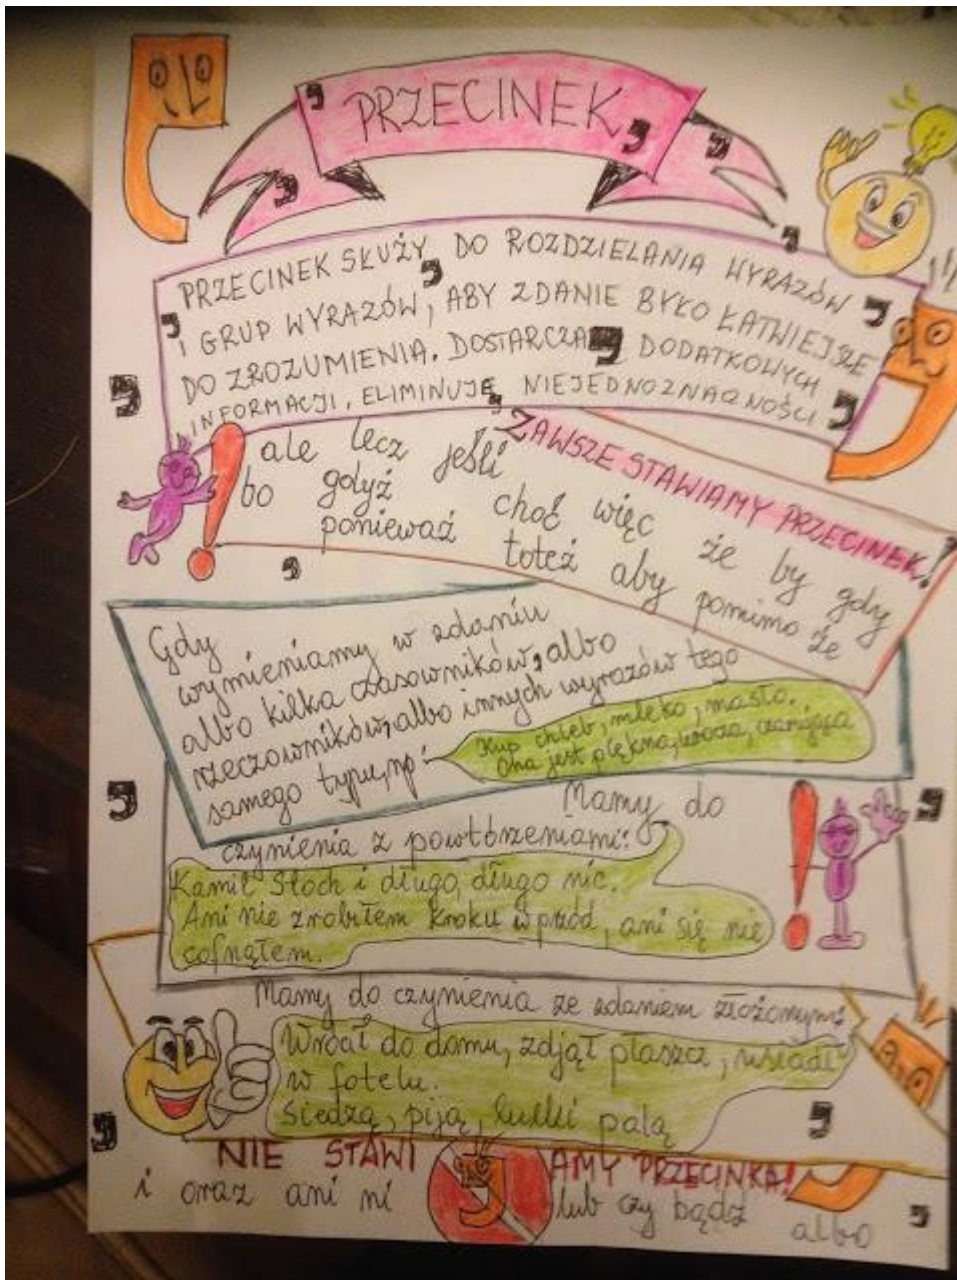 PRZECINEK
PRZECINEK SŁUŻY DO ROZDZIELANIA WYRAZÓW
I GRUP WYRAZÓW, ABY ZDANIE BYŁO ŁATWIEJSZE
DO ZROZUMIENIA. DOSTARCZA DODATKOWYCH
INFORMACJI, ELIMINUJĘ NIEJEDNOZNACZNOŚCI
ZAWSZE STAWIAMY PRZECINEK!
ale lecz jeśli
bo gdyż choć więc że by gdy
ponieważ toteż aby pomimo że
Gdy
wymieniamy w zdaniu
albo kilka czasowników, albo
rzeczowników, albo innych wyrazów tego
samego typu, np:
Kup chleb, mleko, masło.
Ona jest piękna, urocza, czarująca
Mamy do
czynienia z powtórzeniami:
Kamil Stoch i długo, długo nic.
Ani nie zrobiłem kroku w przód, ani się nie
cofnąłem.
Mamy do czynienia ze zdaniem złożonym:
Wrócił do domu, zdjął płaszcz, usiadł
w fotelu.
Siedzą, piją, lulki palą
NIE STAWIAMY PRZECINKA!
i oraz ani ni lub czy bądź albo